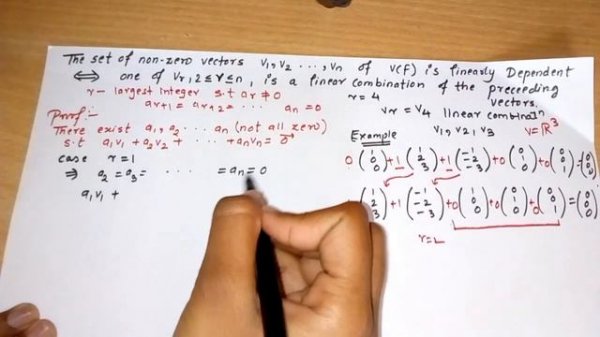 The set of non-zero vectors v₁, v₂ ..., vₙ of V(F) is linearly Dependent
⟺ one of vᵣ, 2 ≤ r ≤ n, is a linear combination of the preceeding vectors.
r - largest integer s.t aᵣ ≠ 0
aᵣ₊₁ = aᵣ₊₂ = ... aₙ = 0
r = 4
vᵣ = v₄ linear combinatⁿ
v₁, v₂, v₃
V = ℝ³
Proof:-
There exist a₁, a₂ ... aₙ (not all zero)
s.t a₁v₁ + a₂v₂ + ... + aₙvₙ = 0
case r = 1
⇒ a₂ = a₃ = ... = aₙ = 0
a₁v₁ +
Example
0 (1 0 0) + 1 (1 2 3) + 1 (-1 -2 -3) + 0 (0 1 0) + 0 (0 0 1) = (0 0 0)
(1 2 3) + 1 (-1 -2 -3) + 0 (1 0 0) + 0 (0 1 0) + 0 (0 0 1) = (0 0 0)
r = 2